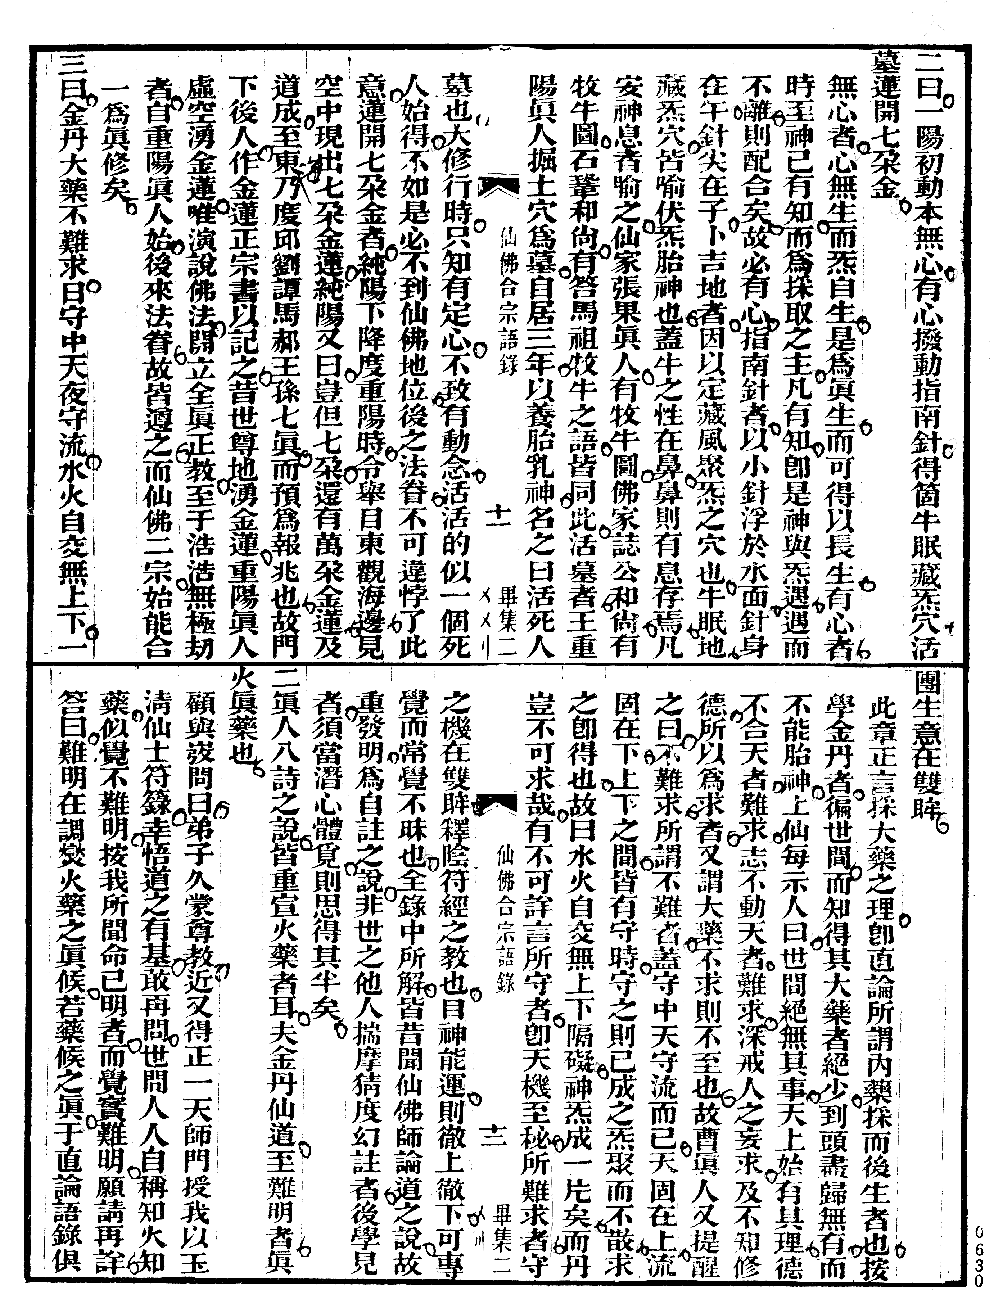 二曰一陽初動本無心有心撥動指南針得箇牛眠藏炁穴活
墓蓮開七朵金
無心者心無生而炁自生是爲眞生而可得以長生有心者
時至神已有知而爲採取之主凡有知卽是神與炁遇遇而
不離則配合矣故必有心指南針者以小針浮於水面針身
在午針尖在子卜吉地者因以定藏風聚炁之穴也牛眠地
藏炁穴皆喻伏炁胎神也蓋牛之性在鼻鼻則有息存焉凡
安神息者喻之仙家張果眞人有牧牛圖佛家誌公和尙有
牧牛圖石鞏和尙有答馬祖牧牛之語皆同此活墓者王重
陽眞人掘土穴爲墓自居三年以養胎乳神名之曰活死人
仙佛合宗語錄
十一
畢集二
墓也大修行時只知有定心不致有動念活活的似一個死
人始得不如是必不到仙佛地位後之法眷不可違悖了此
意蓮開七朵金者純陽下降度重陽時令舉目東觀海邊見
空中現出七朵金蓮純陽又曰豈但七朵還有萬朵金蓮及
道成至東乃度邱劉譚馬郝王孫七眞而預爲報兆也故門
下後人作金蓮正宗書以記之昔世尊地湧金蓮重陽眞人
虛空湧金蓮唯演說佛法闢立全眞正教至于浩浩無極劫
者自重陽眞人始後來法眷故皆遵之而仙佛二宗始能合
一爲眞修矣
三曰金丹大藥不難求日守中天夜守流水火自交無上下一
團生意在雙眸
此章正言採大藥之理卽直論所謂內藥採而後生者也按
學金丹者徧世間而知得其大藥者絕少到頭盡歸無有而
不能胎神上仙每示人曰世間絕無其事天上始有其理德
不合天者難求志不動天者難求深戒人之妄求及不知修
德所以爲求者又謂大藥不求則不至也故曹眞人又提醒
之曰不難求所謂不難者蓋守中天守流而已天固在上流
固在下上下之間皆有守時守之則已成之炁聚而不散求
之卽得也故曰水火自交無上下隔礙神炁成一片矣而丹
豈不可求哉有不可詳言所守者卽天機至秘所難求者守
仙佛合宗語錄
十二
畢集二
之機在雙眸釋陰符經之教也目神能運則徹上徹下可專
覺而常覺不昧也全錄中所解皆昔聞仙佛師論道之說故
重發明爲自註之說非世之他人揣摩猜度幻註者後學見
者須當潛心體覓則思得其半矣
二眞人八詩之說皆重宣火藥者耳夫金丹仙道至難明者眞
火眞藥也
顧與㚇問曰弟子久蒙尊教近又得正一天師門授我以玉
淸仙士符籙幸悟道之有基敢再問世間人人自稱知火知
藥似覺不難明按我所聞命已明者而覺實難明願請再詳
答曰難明在調爕火藥之眞候若藥候之眞于直論語錄俱
0630